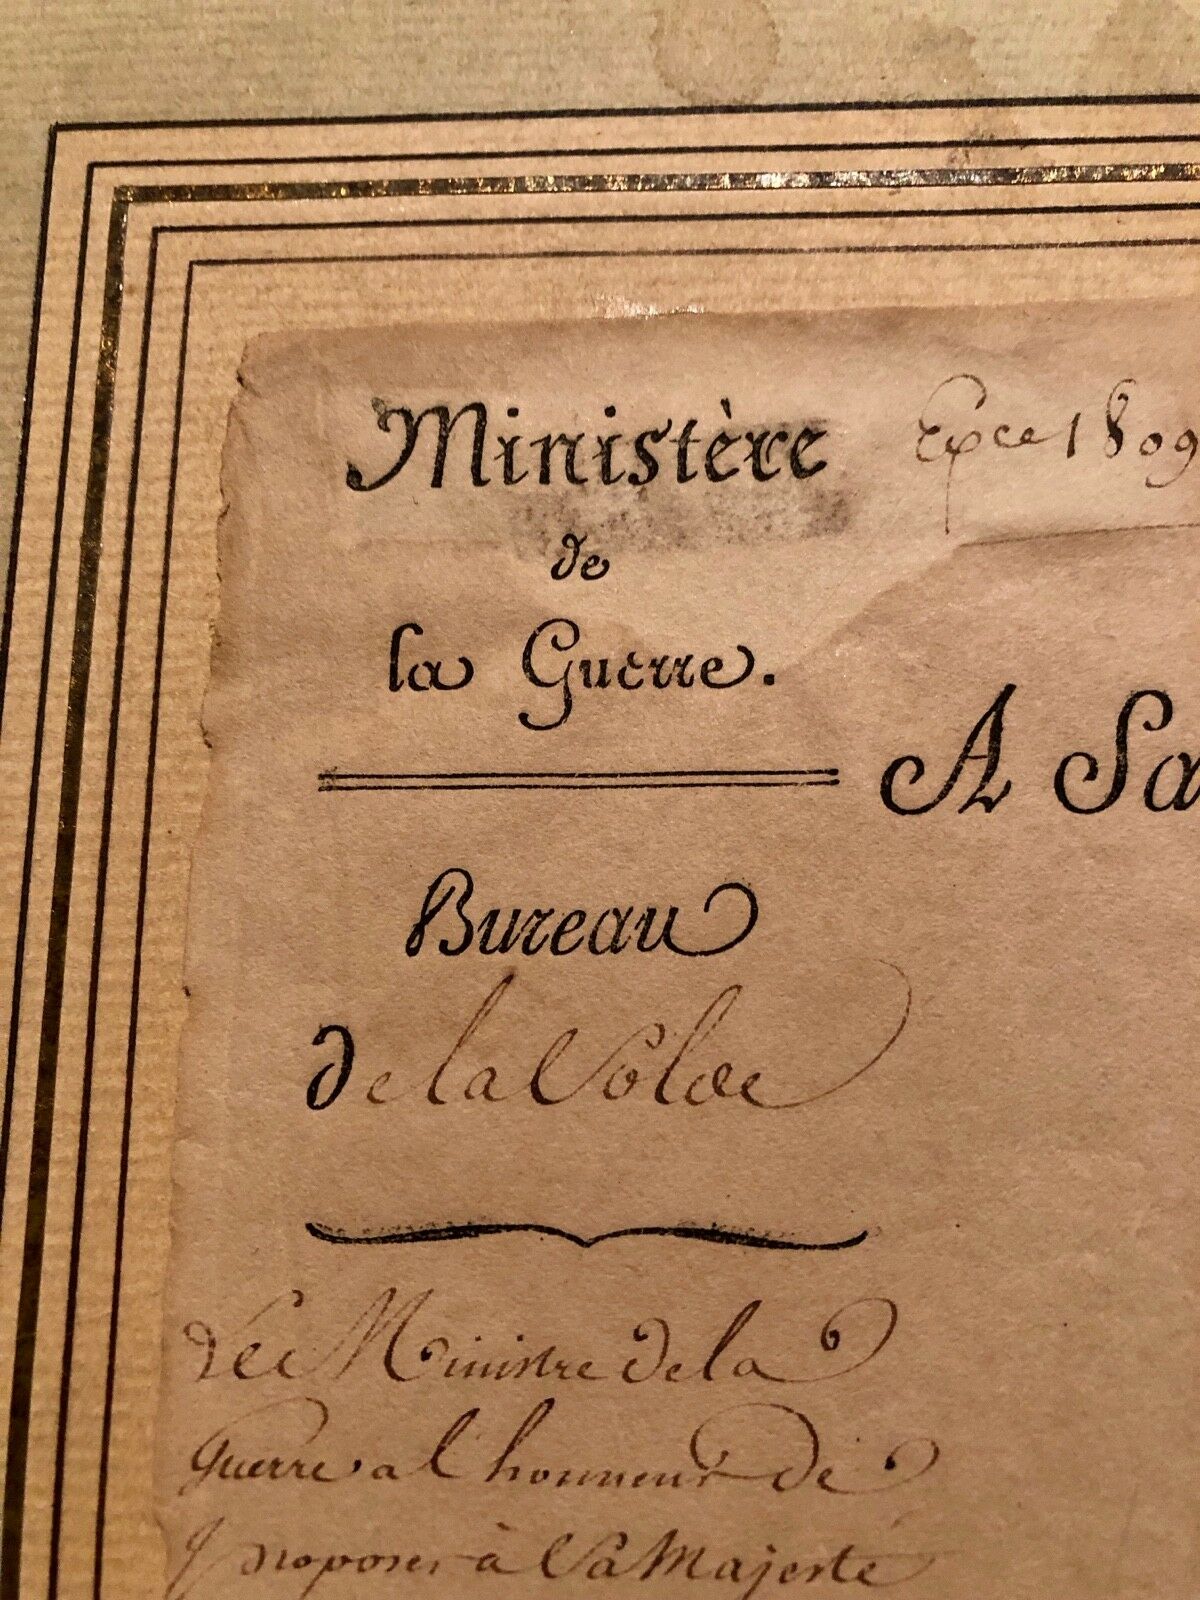 Ministère
de
la Guerre.
Exce 1809
A Sa
Bureau
de la Solde
Le Ministre de la
Guerre a l'honneur de
proposer à Sa Majesté